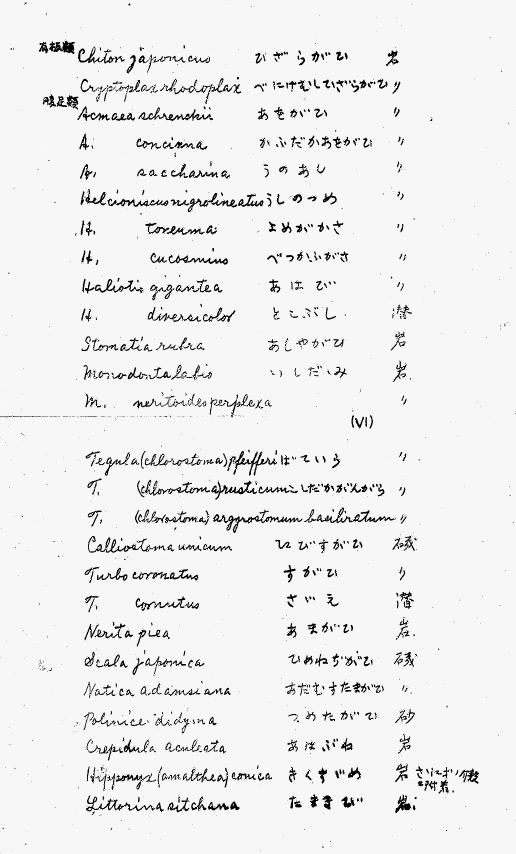 有板類 Chiton japonicus ひざらがひ 岩
Cryptoplax rhodoplax べにけむしひざらがひ 〃
腹足類 Acmaea schrenckii あをがひ 〃
A. concinna かふだかあをがひ 〃
A. saccharina うのあし 〃
Helcioniscus nigrolineatus うしのつめ 〃
H. toreuma よめがかさ 〃
H, eucosmius べつかふがさ 〃
Haliotis gigantea あはび 〃
H. diversicolor とこぶし. 潜
Stomatia rubra あしやがひ 岩
Monodonta labio いしだゝみ 岩
M. neritoides perplexa 〃
(VI)
Tegula (chlorostoma) pfeifferi ばていら 〃
T. (chlorostoma) rusticum こしだかがんがら 〃
T. (chlorostoma) argyrostomum basiliratum 〃
Calliostoma unicum ゑびすがひ 礁
Turbo coronatus すがひ 〃
T. cornutus さゞえ 潜
Nerita picea あまがひ 岩.
Scala japonica ひめねぢがひ 礁
Natica adamsiana あだむすたまがひ 〃
Polinice didyma つめたがひ 砂
Crepidula aculeata あはぶね 岩
Hipponyx (amalthea) conica きくすゞめ 岩 附着.
Littorina sitchana たまきび 岩.